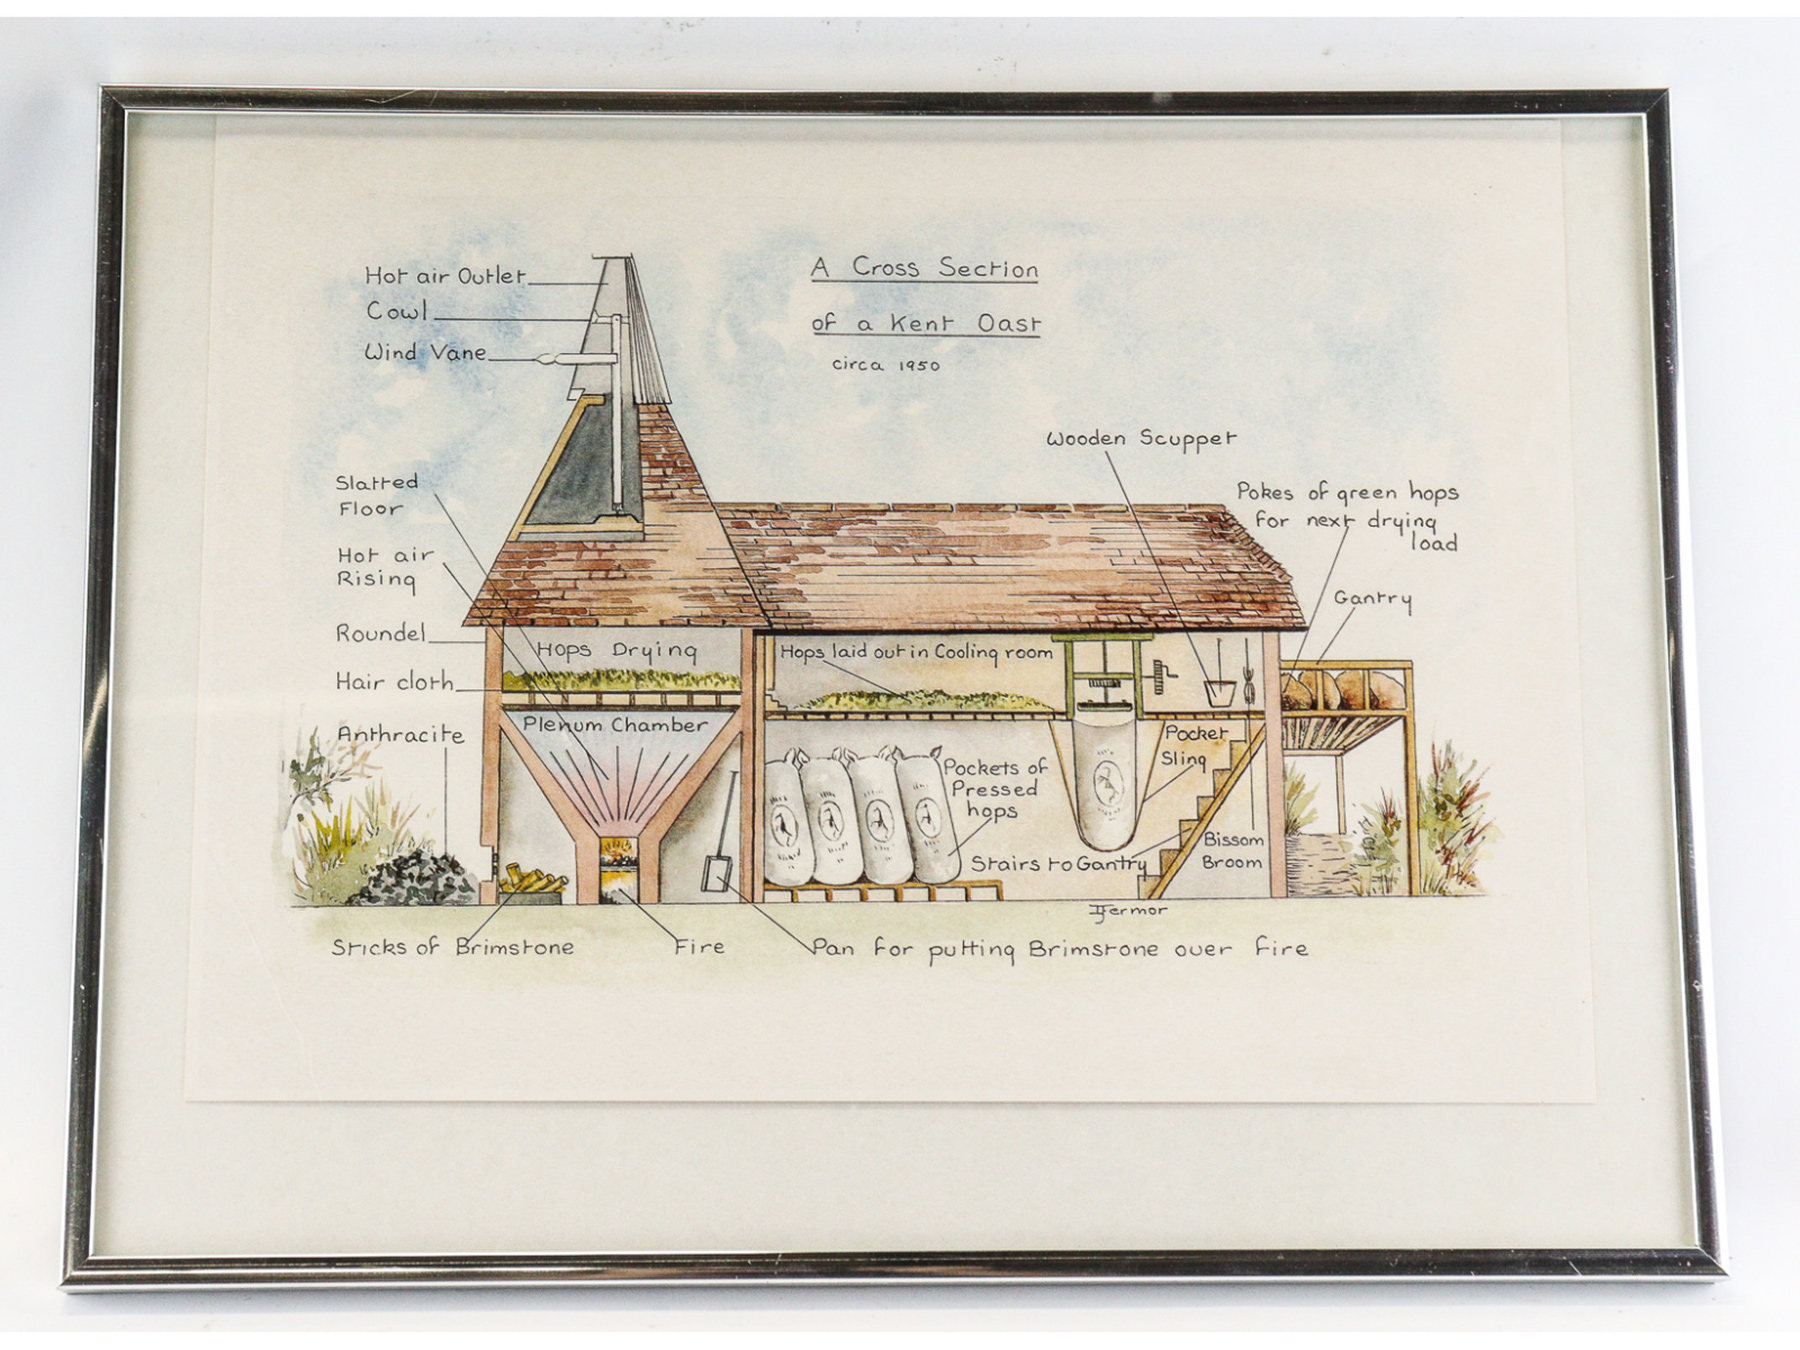 A Cross Section
of a Kent Oast
circa 1950
Hot air Outlet
Cowl
Wind Vane
Wooden Scuppet
Slatted
Floor
Pokes of green hops
for next drying
load
Hot air
Rising
Gantry
Roundel
Hops Drying
Hops laid out in Cooling room
Hair cloth
Anthracite
Plenum Chamber
Pocket
Sling
Pockets of
Pressed
hops
Stairs to Gantry
Bissom
Broom
Fermor
Sticks of Brimstone
Fire
Pan for putting Brimstone over fire